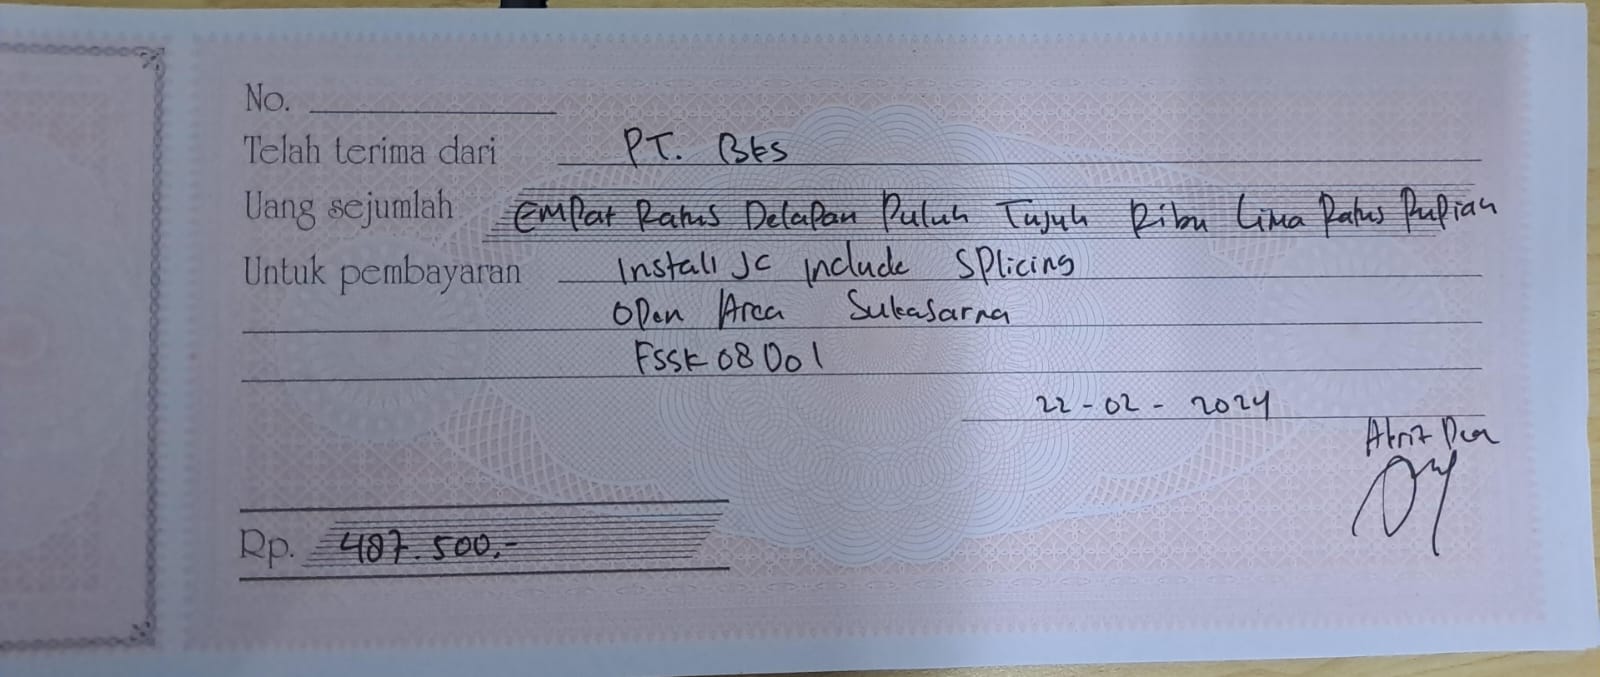 No.
Telah terima dari PT. BKS
Uang sejumlah Empat Ratus Delapan Puluh Tujuh Ribu Lima Ratus Rupiah
Untuk pembayaran Install JC include Splicing
Open Area Sukasarna
FSSK08D01
22-02-2024
Rp. 487.500,-